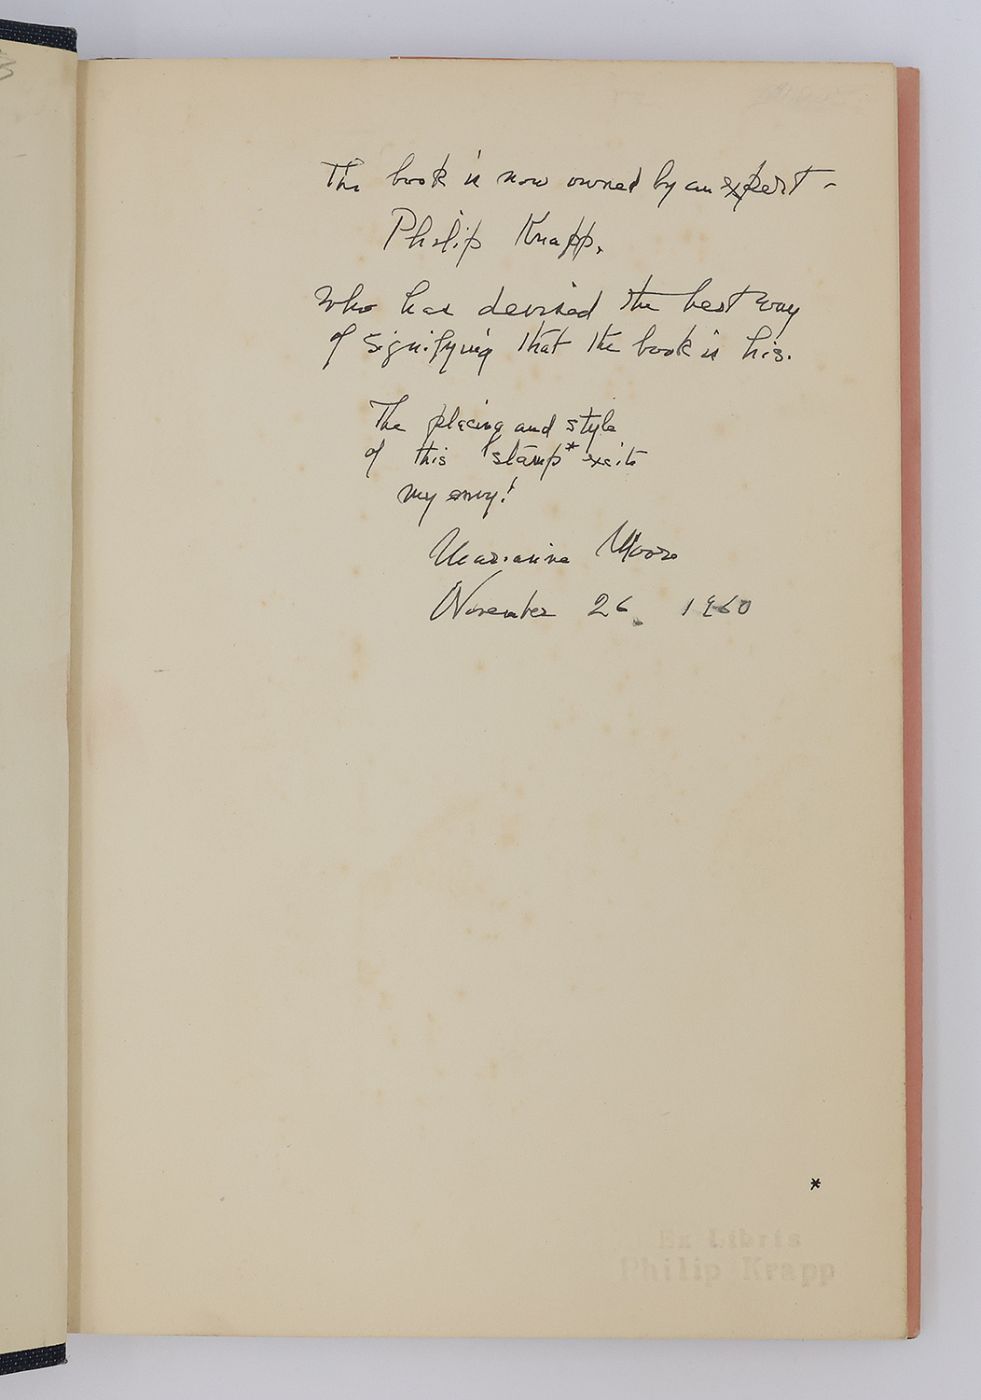 The book is now owned by an expert –
Philip Krapp,
who has devised the best way
of signifying that the book is his.
The placing and style
of this "stamp* excite
my envy!
Marianne Moore
November 26, 1960
*
Ex Libris
Philip Krapp